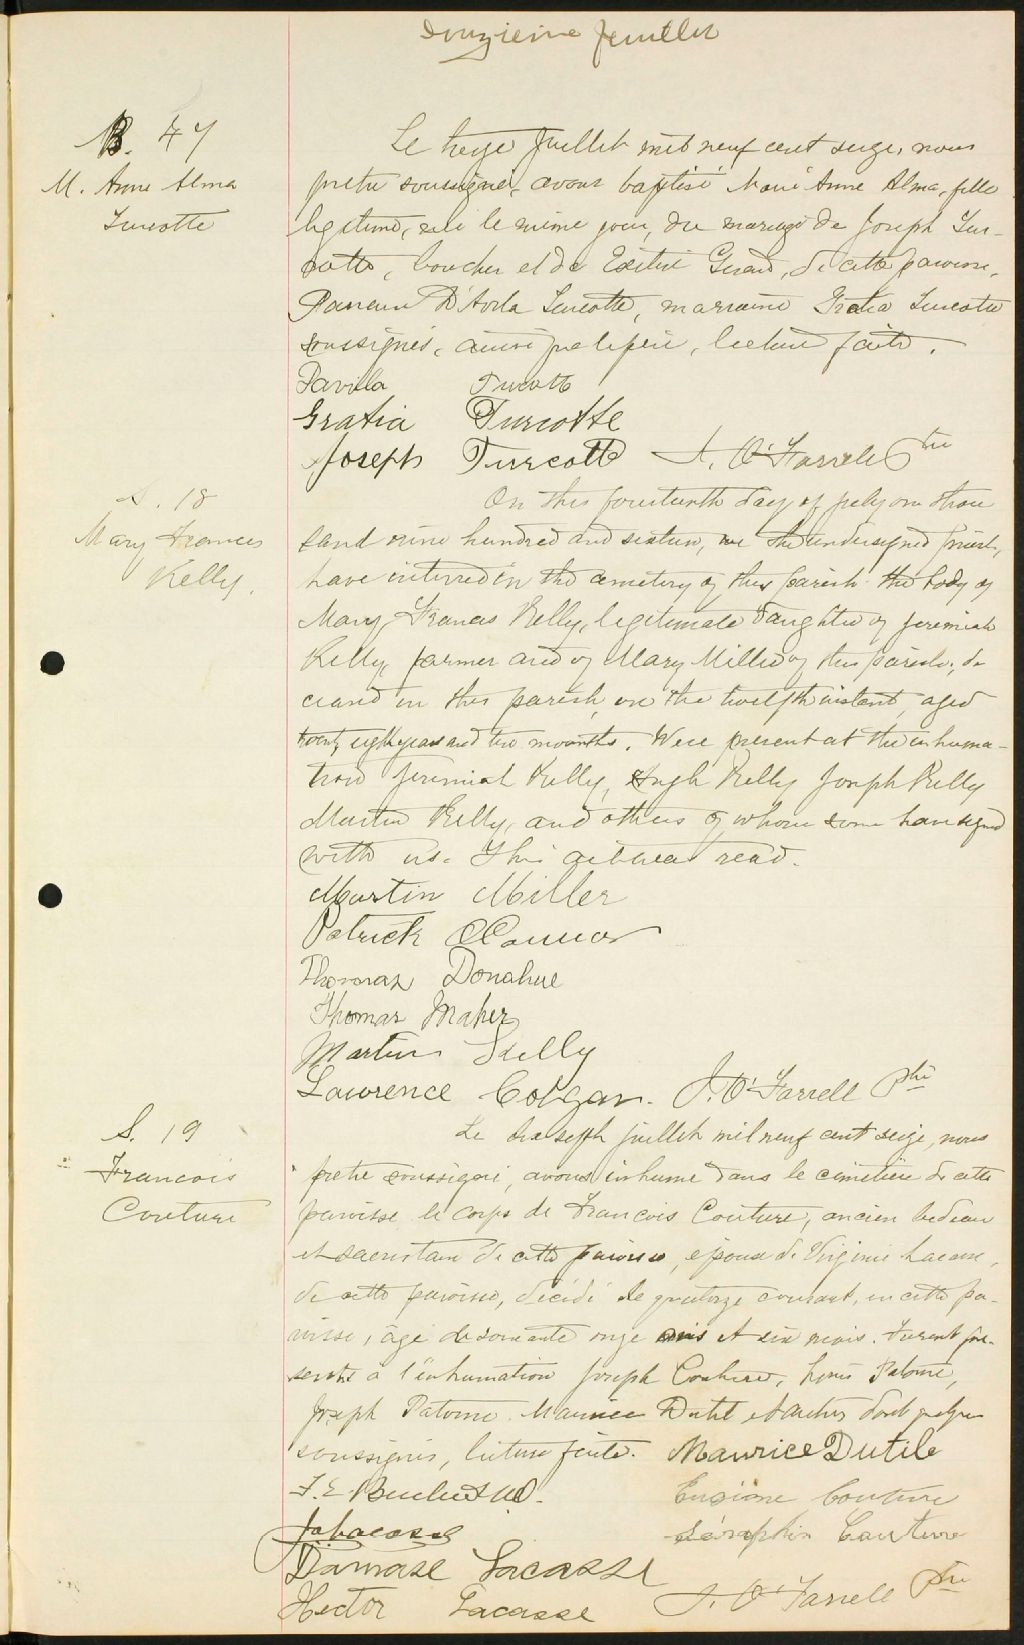 douzième feuillet
B. 47
M. Anne Alma
Turcotte
Le treize Juillet mil neuf cent seize, nous
pretre soussigné, avons baptisé Marie Anne Alma, fille
legitime, née le même jour, du mariage de Joseph Tur-
cotte, boucher et de Exilire Girard, de cette paroisse,
Parrain D'Avila Turcotte, marraine Gratia Turcotte
soussignés, ainsi que le père, lecture faite.
Davila Turcotte
Gratia Turcotte
Joseph Turcotte J. O'Farrell Ptre
S. 18
Mary Frances
Kelly.
On this fourteenth day of july one thou
sand nine hundred and sixteen, we the undersigned priest,
have interred in the cemetery of this parish the body of
Mary Frances Kelly, legitimate daughter of Jeremiah
Kelly, farmer and of Mary Miller of this parish, de
ceased in this parish, on the twelfth instant, aged
twenty eight years and two moonths. Were present at the inhuma-
tion Jeremiah Kelly, Hugh Kelly Joseph Kelly
Martin Kelly, and others of whom some have signed
with us. This read.
Martin Miller
Patrick OConnor
Thomas Donahue
Thomas Maher
Martin Kelly
Lawrence Colgan. J. O'Farrell Ptre
S. 19
Francois
Couture
Le dix sept juillet mil neuf cent seize, nous
pretre soussigné, avons inhumé dans le cimetière de cette
paroisse le corps de Francois Couture, ancien bedeau
et sacristain de cette paroisse, époux de Virginie Lacasse,
de cette paroisse, décédé le quatorze courant, en cette pa-
roisse, âgé de soixante onze ans et six mois. Furent pré-
sents à l'inhumation Joseph Couture, Louis Patoine,
Joseph Patoine. Maurice Dutil et autres dont quelques
soussignés, lecture faite. Maurice Dutile
Eugène Couture
Jos Lacasse Séraphin Couture
Damase Lacasse
Hector Lacasse J. O'Farrell Ptre